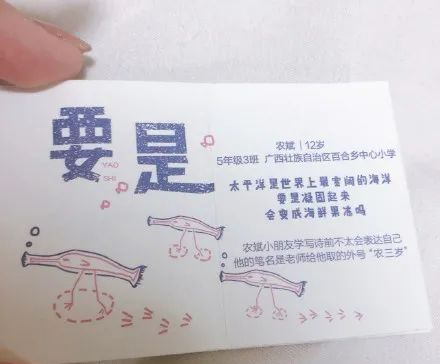 要是
YAO
SHI
农斌 | 12岁
5年级3班 广西壮族自治区百合乡中心小学
太平洋是世界上最宽阔的海洋
要是凝固起来
会变成海鲜果冻吗
农斌小朋友学写诗前不太会表达自己
他的笔名是老师给他取的外号“农三岁”